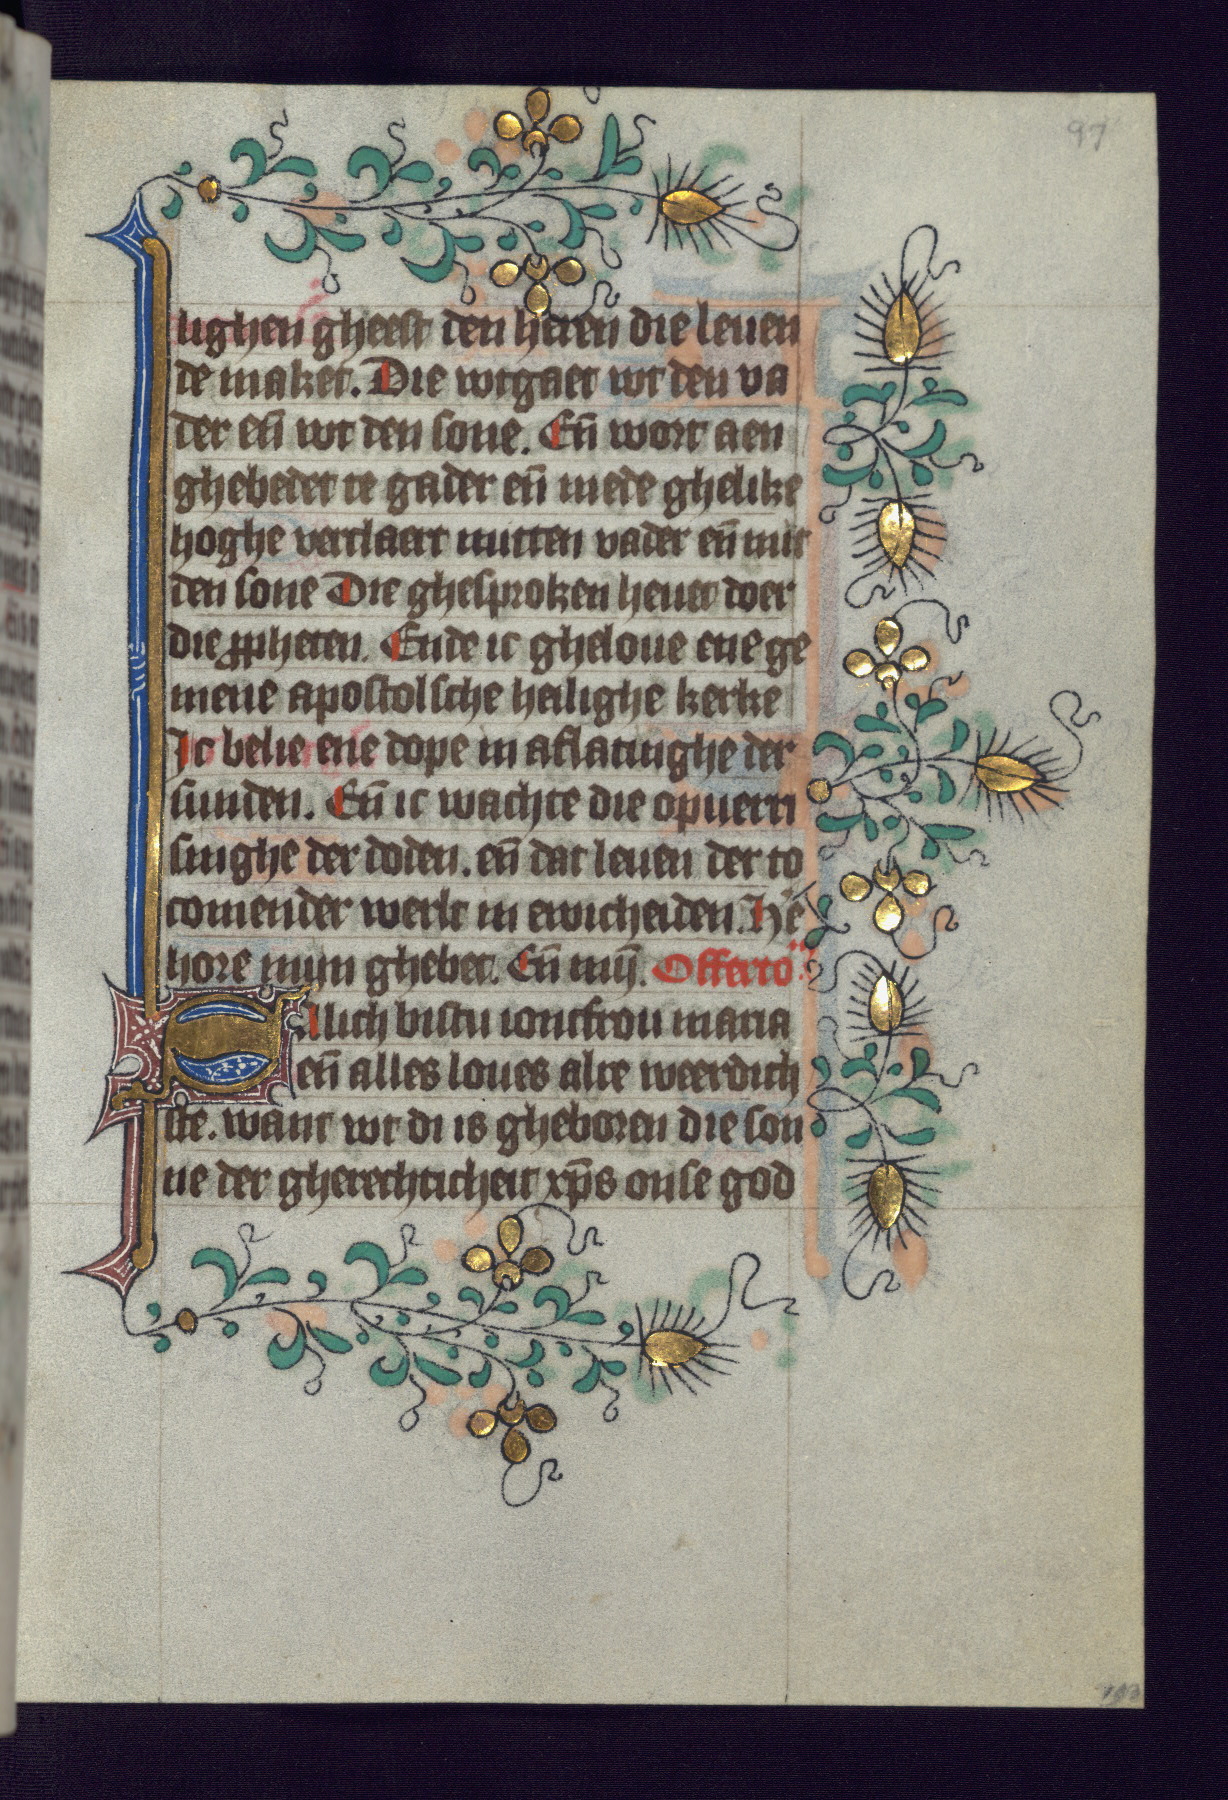 97
lighen gheest den heren die leuen
de maket. Die wtgaet wt den va
der eñ wt den sone. Eñ wort aen
ghebedet te gader eñ mede ghelike
hoghe verclaert mitten vader eñ mit
den sone Die ghesproken heuet doer
die ꝓpheten. Ende ic gheloue ene ge
mene apostolsche heilighe kerke
Ic belie ene dope in aflatinghe der
sunden. Eñ ic wachte die opuerri
singhe der doden. eñ dat leuen der to
comender werlt in ewicheiden. He͛
hore mijn ghebet. Eñ mij. Offerto
Salich bistu ioncfrou maria
eñ alles loues alre weerdich
ste. want wt di is gheboren die son
ne der gherechticheit xp̄s onse god